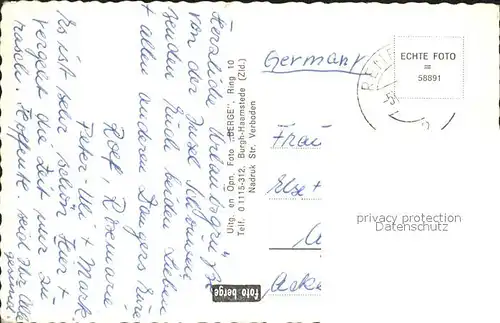 Herzliche Urlaubsgrüße
von der Insel
senden Euch beiden Lieben
+ allen anderen Langers Eure
Rolf, Rosemarie
Peter, Uli + Mark.
Es ist sehr schön hier +
vergeht die Zeit nur zu
rasch. Hoffentl. seid Ihr alle
gesund.
Uitg. en Opn. Foto „BERGE", Ring 10
Telf. 01115-312, Burgh-Haamstede (Zld.)
Nadruk Str. Verboden
foto berge
Germany
ECHTE FOTO
=
58891
Frau
Else +
privacy protection
Datenschutz